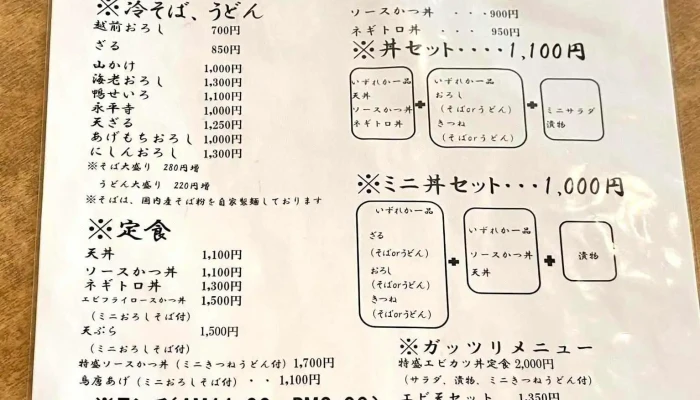 ※冷そば、うどん
越前おろし 700円
ざる 850円
山かけ 1,000円
海老おろし 1,300円
鴨せいろ 1,100円
永平寺 1,000円
天ざる 1,250円
あげもちおろし 1,000円
にしんおろし 1,300円
※そば大盛り 280円増
うどん大盛り 220円増
※そばは、国内産そば粉を自家製麺しております
※定食
天丼 1,100円
ソースかつ丼 1,100円
ネギトロ丼 1,300円
エビフライロースかつ丼 1,500円
(ミニおろしそば付)
天ぷら 1,500円
(ミニおろしそば付)
特盛ソースかつ丼(ミニきつねうどん付) 1,700円
鳥唐あげ(ミニおろしそば付)・・1,100円
ソースかつ丼 ・・・900円
ネギトロ丼 ・・・ 950円
※丼セット・・・・1,100円
いずれか一品
天丼
ソースかつ丼
ネギトロ丼
+
いずれか一品
おろし
(そばorうどん)
きつね
(そばorうどん)
+
ミニサラダ
漬物
※ミニ丼セット・・・1,000円
いずれか一品
ざる
(そばorうどん)
おろし
(そばorうどん)
きつね
(そばorうどん)
+
いずれか一品
ソースかつ丼
天丼
+
漬物
※ガッツリメニュー
特盛エビカツ丼定食 2,000円
(サラダ、漬物、ミニきつねうどん付)
エビ天セット 1,350円